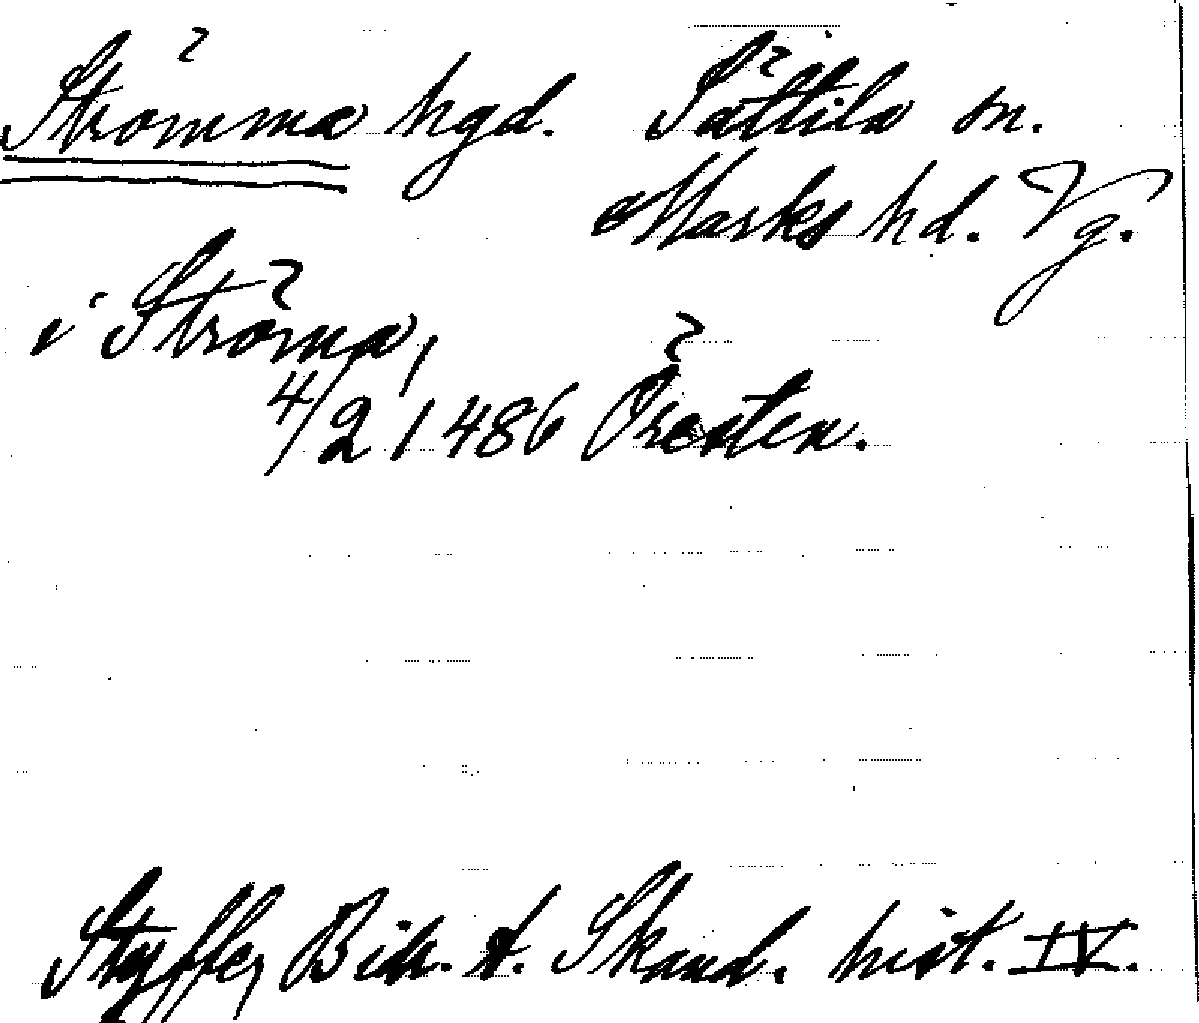 Strömma hgd. Sättila sn.
Marks hd. Vg.
i Ströma,
4/2 1486 Öresten.
Styffe, Bidr. t. Skand. hist. IV.